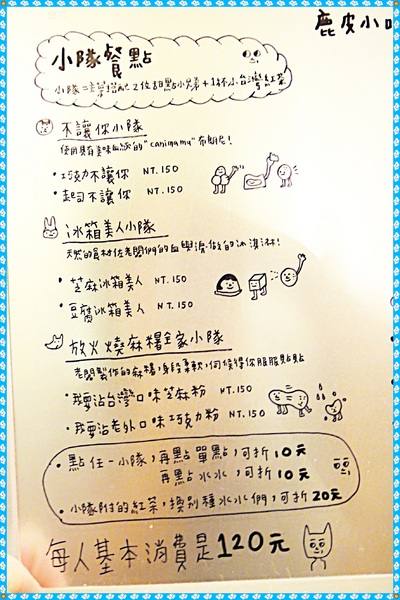 鹿皮小
小隊餐點
小隊一律搭配2位甜點小弟+1杯小台灣紅茶
不讓你小隊
使用具有美味血統的"canimamu"布朗尼!
·巧克力不讓你 NT.150
·起司不讓你 NT.150
冰箱美人小隊
天然的食材佐老闆們的血與淚做的冰淇淋!
·芝麻冰箱美人 NT.150
·豆腐冰箱美人 NT.150
放火燒麻糬全家小隊
老闆製作的麻糬,身段柔軟,伺候得你服服貼貼
·我要沾台灣口味芝麻粉 NT.150
·我要沾老外口味巧克力粉 NT.150
·點任一小隊,再點單點,可折10元
再點水水,可折10元
·小隊附的紅茶,換別種水水們,可折20元
每人基本消費是120元